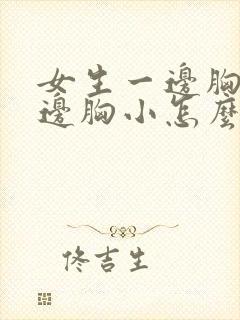 女生一邊胸
邊胸小怎麼
佟吉生